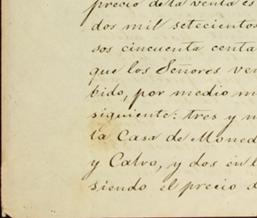 precio de la venta es
dos mil setecientos
sos cincuenta centa
que los Señores ven
bido, por medio m
siguiente: tres y m
la Casa de Moned
y Calvo, y dos en l
siendo el precio d